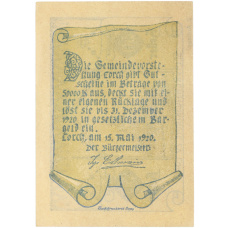 Die Gemeindevorste-
hung Lorch gibt Gut-
scheine im Betrage von
50000 K aus, deckt sie mit ei-
ner eigenen Rücklage und
löst sie bis 31. Dezember
1920 in gesetzlichem Bar-
geld ein.
Lorch, am 15. Mai 1920.
Der Bürgermeister: